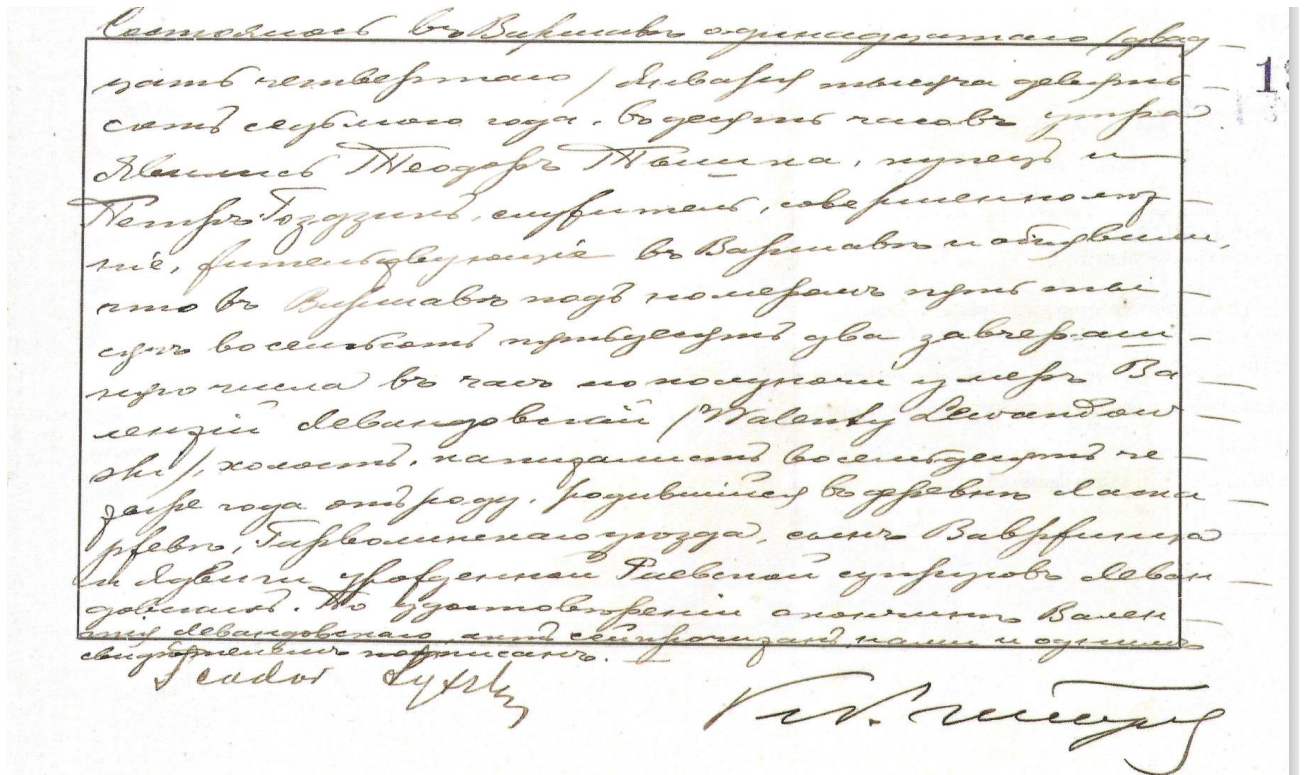 Состоялось въ Варшавѣ одинадцатаго /двад
цать четвертаго/ Января тысяча девять
сотъ седьмого года, въ десять часовъ утра
Явились Теодоръ купецъ и
Петръ Гоздзикъ, служитель, совершеннолѣт
ніе, жительствующіе въ Варшавѣ и объявили,
что въ Варшавѣ подъ номеромъ пять ты
сячъ восемьсотъ пятьдесятъ два завчераш
няго числа въ часъ пополуночи умеръ Ва
лентій Левандовскій /Walenty Lewandow
ski/, холостъ, капиталистъ восемьдесятъ че
тыре года отъ роду, родившійся въ деревнѣ
Гарволинскаго уѣзда, сынъВавржинца
и Ядвиги урожденной Раевской супруговъ Леван
довскихъ. По удостовѣреніи кончины Вален
тія Левандовскаго актъ сей прочитанъ, нами и однимъ
свидѣтелемъ подписанъ.
Teodor